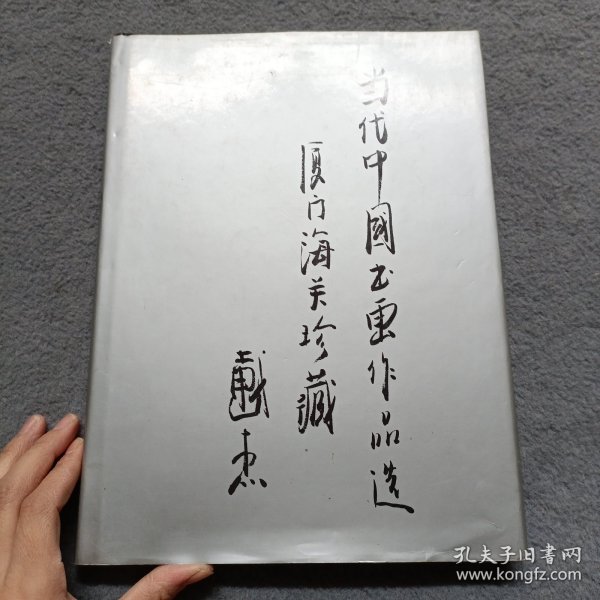 当代中國书画作品选
厦门海关珍藏
戴杰
孔夫子旧书网
www.kongfz.com